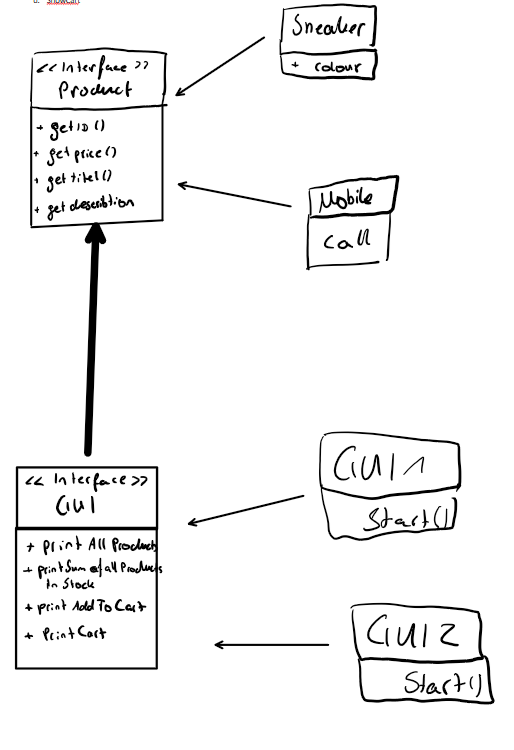 d. showCart
Sneaker
+ colour
<< Interface >>
Product
+ getID()
+ get price()
+ get titel()
+ get describtion
Mobile
Call
<< Interface >>
GUI
+ print All Products
+ print Sum of all Products
In Stock
+ print Add To Cart
+ Print Cart
GUI 1
Start()
GUI 2
Start()